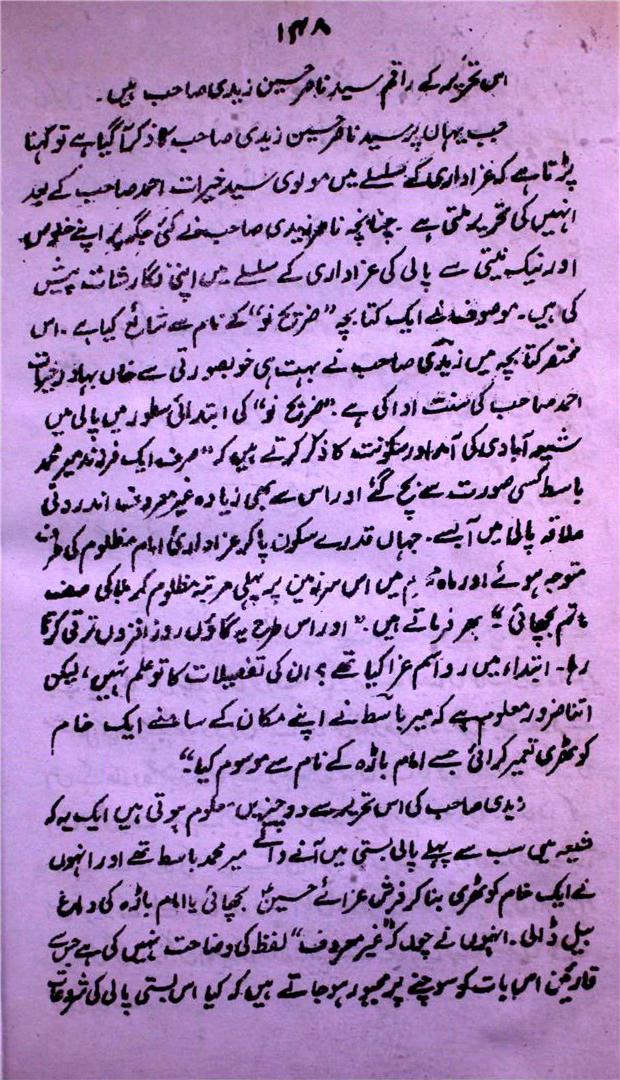 ۱۴۸
اس تحریر کے راقم سید ناصر حسین زیدی صاحب ہیں۔
جب یہاں پر سید ناصر حسین زیدی صاحب کا ذکر آگیا ہے تو کہنا
پڑتا ہے کہ عزاداری کے سلسلے میں مولوی سید خیرات احمد صاحب کے بعد
انہیں کی تحریر ملتی ہے۔ چنانچہ ناصر زیدی صاحب نے کئی جگہ پر اپنے خلوص
اور نیک نیتی سے پالی کی عزاداری کے سلسلے میں اپنی نگارشات پیش
کی ہیں۔ موصوف نے ایک کتابچہ "ضریح نو" کے نام سے شائع کیا ہے۔ اس
مختصر کتابچہ میں زیدی صاحب نے بہت ہی خوبصورتی سے خان بہادر خیرات
احمد صاحب کی سنت ادا کی ہے۔ "ضریح نو" کی ابتدائی سطور میں پالی میں
شیعہ آبادی کی آمد اور سکونت کا ذکر کرتے ہیں کہ "صرف ایک فرزند میر محمد
باسط کسی صورت سے بچ گئے اور اس سے بھی زیادہ غیر معروف اندرونی
علاقہ پالی میں آبسے۔ جہاں قدرے سکون پا کر عزاداریٔ امام مظلوم کی طرف
متوجہ ہوئے اور ماہ میں اس سرزمین پر پہلی مرتبہ مظلوم کربلا کی صف
ماتم بچھائی" پھر فرماتے ہیں۔ "اور اس طرح یہ گاؤں روز افزوں ترقی کرتا
رہا۔ ابتداء میں رواسم عزا کیا تھے؟ ان کی تفصیلات کا تو علم نہیں، لیکن
اتنا ضرور معلوم ہے کہ میر باسط نے اپنے مکان کے سامنے ایک خام
کوٹھری تعمیر کرائی جسے امام باڑہ کے نام سے موسوم کیا"
زیدی صاحب کی اس تحریر سے دو چیزیں معلوم ہوتی ہیں ایک یہ کہ
شیعہ میں سب سے پہلے پالی بستی میں آنے والے میر محمد باسط تھے اور انہوں
نے ایک خام کوٹھری بنا کر فرش عزائے حسینؑ بچھائی یا امام باڑہ کی داغ
بیل ڈالی۔ انہوں نے چونکہ "غیر معروف" لفظ کی وضاحت نہیں کی ہے جس سے
قارئین اس بات کو سوچنے پر مجبور ہو جاتے ہیں کہ کیا اس بستی پالی کی شروعات